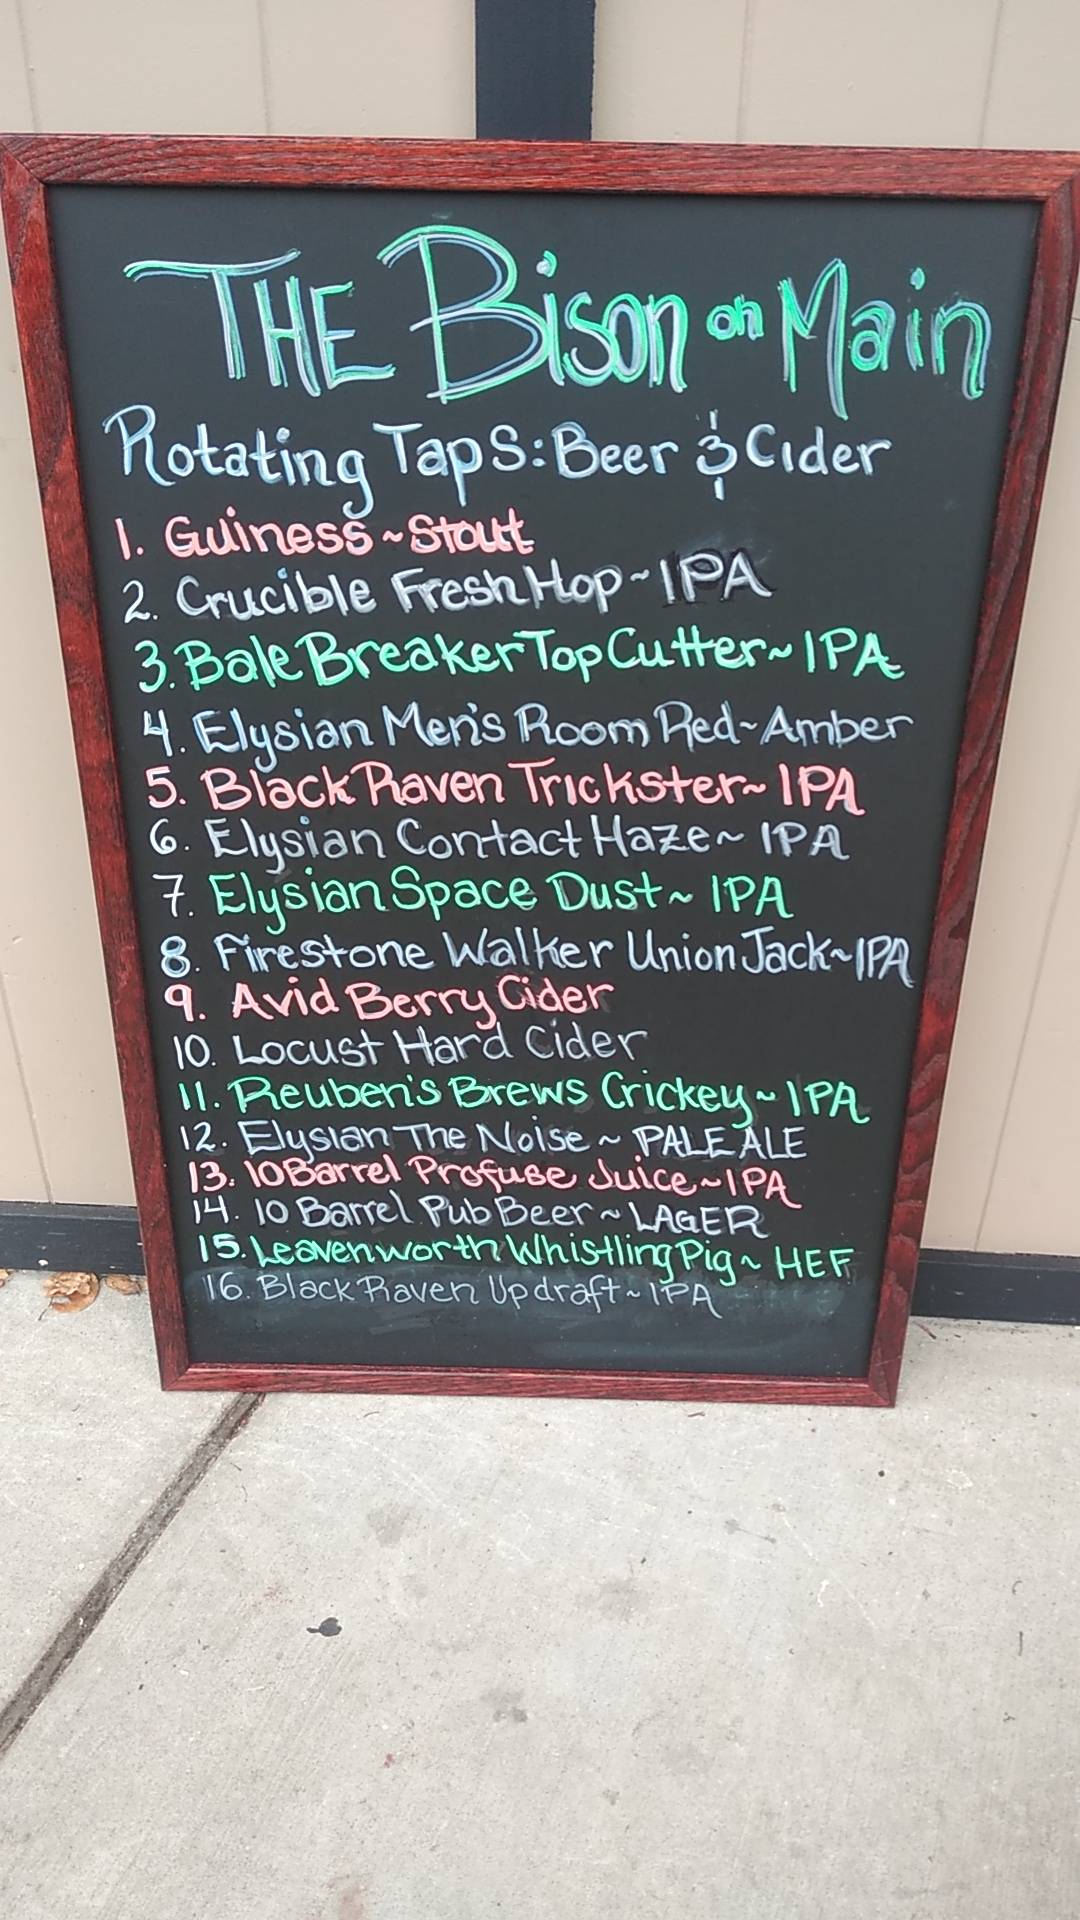 THE Bison on Main
Rotating Taps: Beer & Cider
1. Guiness ~ Stout
2. Crucible Fresh Hop ~ IPA
3. Bale Breaker Top Cutter ~ IPA
4. Elysian Men's Room Red ~ Amber
5. Black Raven Trickster ~ IPA
6. Elysian Contact Haze ~ IPA
7. Elysian Space Dust ~ IPA
8. Firestone Walker Union Jack ~ IPA
9. Avid Berry Cider
10. Locust Hard Cider
11. Reuben's Brews Crickey ~ IPA
12. Elysian The Noise ~ PALE ALE
13. 10 Barrel Profuse Juice ~ IPA
14. 10 Barrel Pub Beer ~ LAGER
15. Leavenworth Whistling Pig ~ HEF
16. Black Raven Updraft ~ IPA